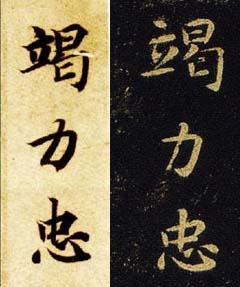 竭力忠
竭力忠